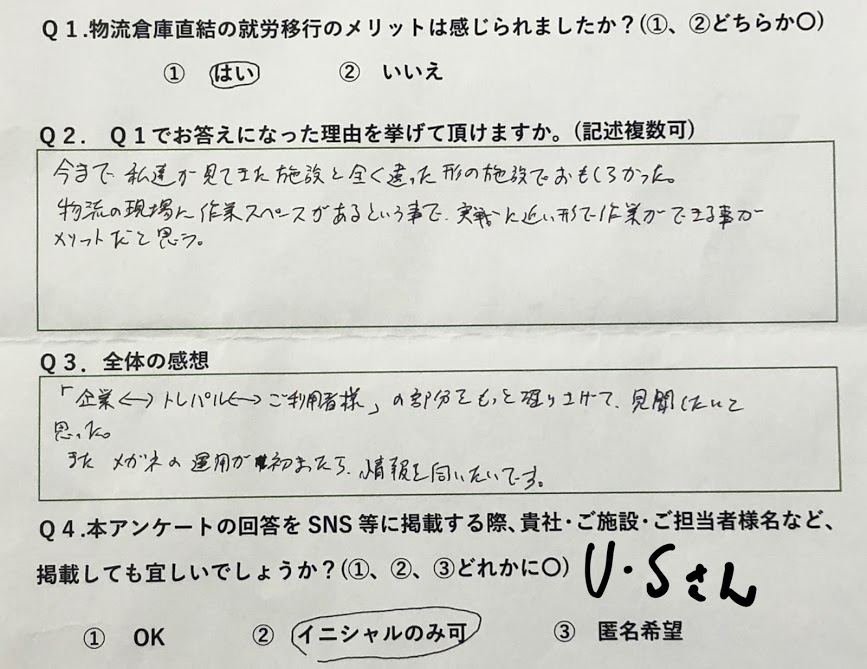 Q1.物流倉庫直結の就労移行のメリットは感じられましたか？(①、②どちらか〇)
① はい ② いいえ
Q2. Q1でお答えになった理由を挙げて頂けますか。(記述複数可)
今まで私達が見てきた施設と全く違った形の施設でおもしろかった。
物流の現場に作業スペースがあるという事で、実戦に近い形で作業ができる事が
メリットだと思う。
Q3. 全体の感想
「企業⟷トレパル⟷ご利用者様」の部分をもっと掘り上げて、見聞したいと
思った。
また メガネの運用が初まったら、情報を伺いたいです。
Q4.本アンケートの回答を SNS 等に掲載する際、貴社・ご施設・ご担当者様名など、
掲載しても宜しいでしょうか？(①、②、③どれかに〇) U・Sさん
① OK ② イニシャルのみ可 ③ 匿名希望